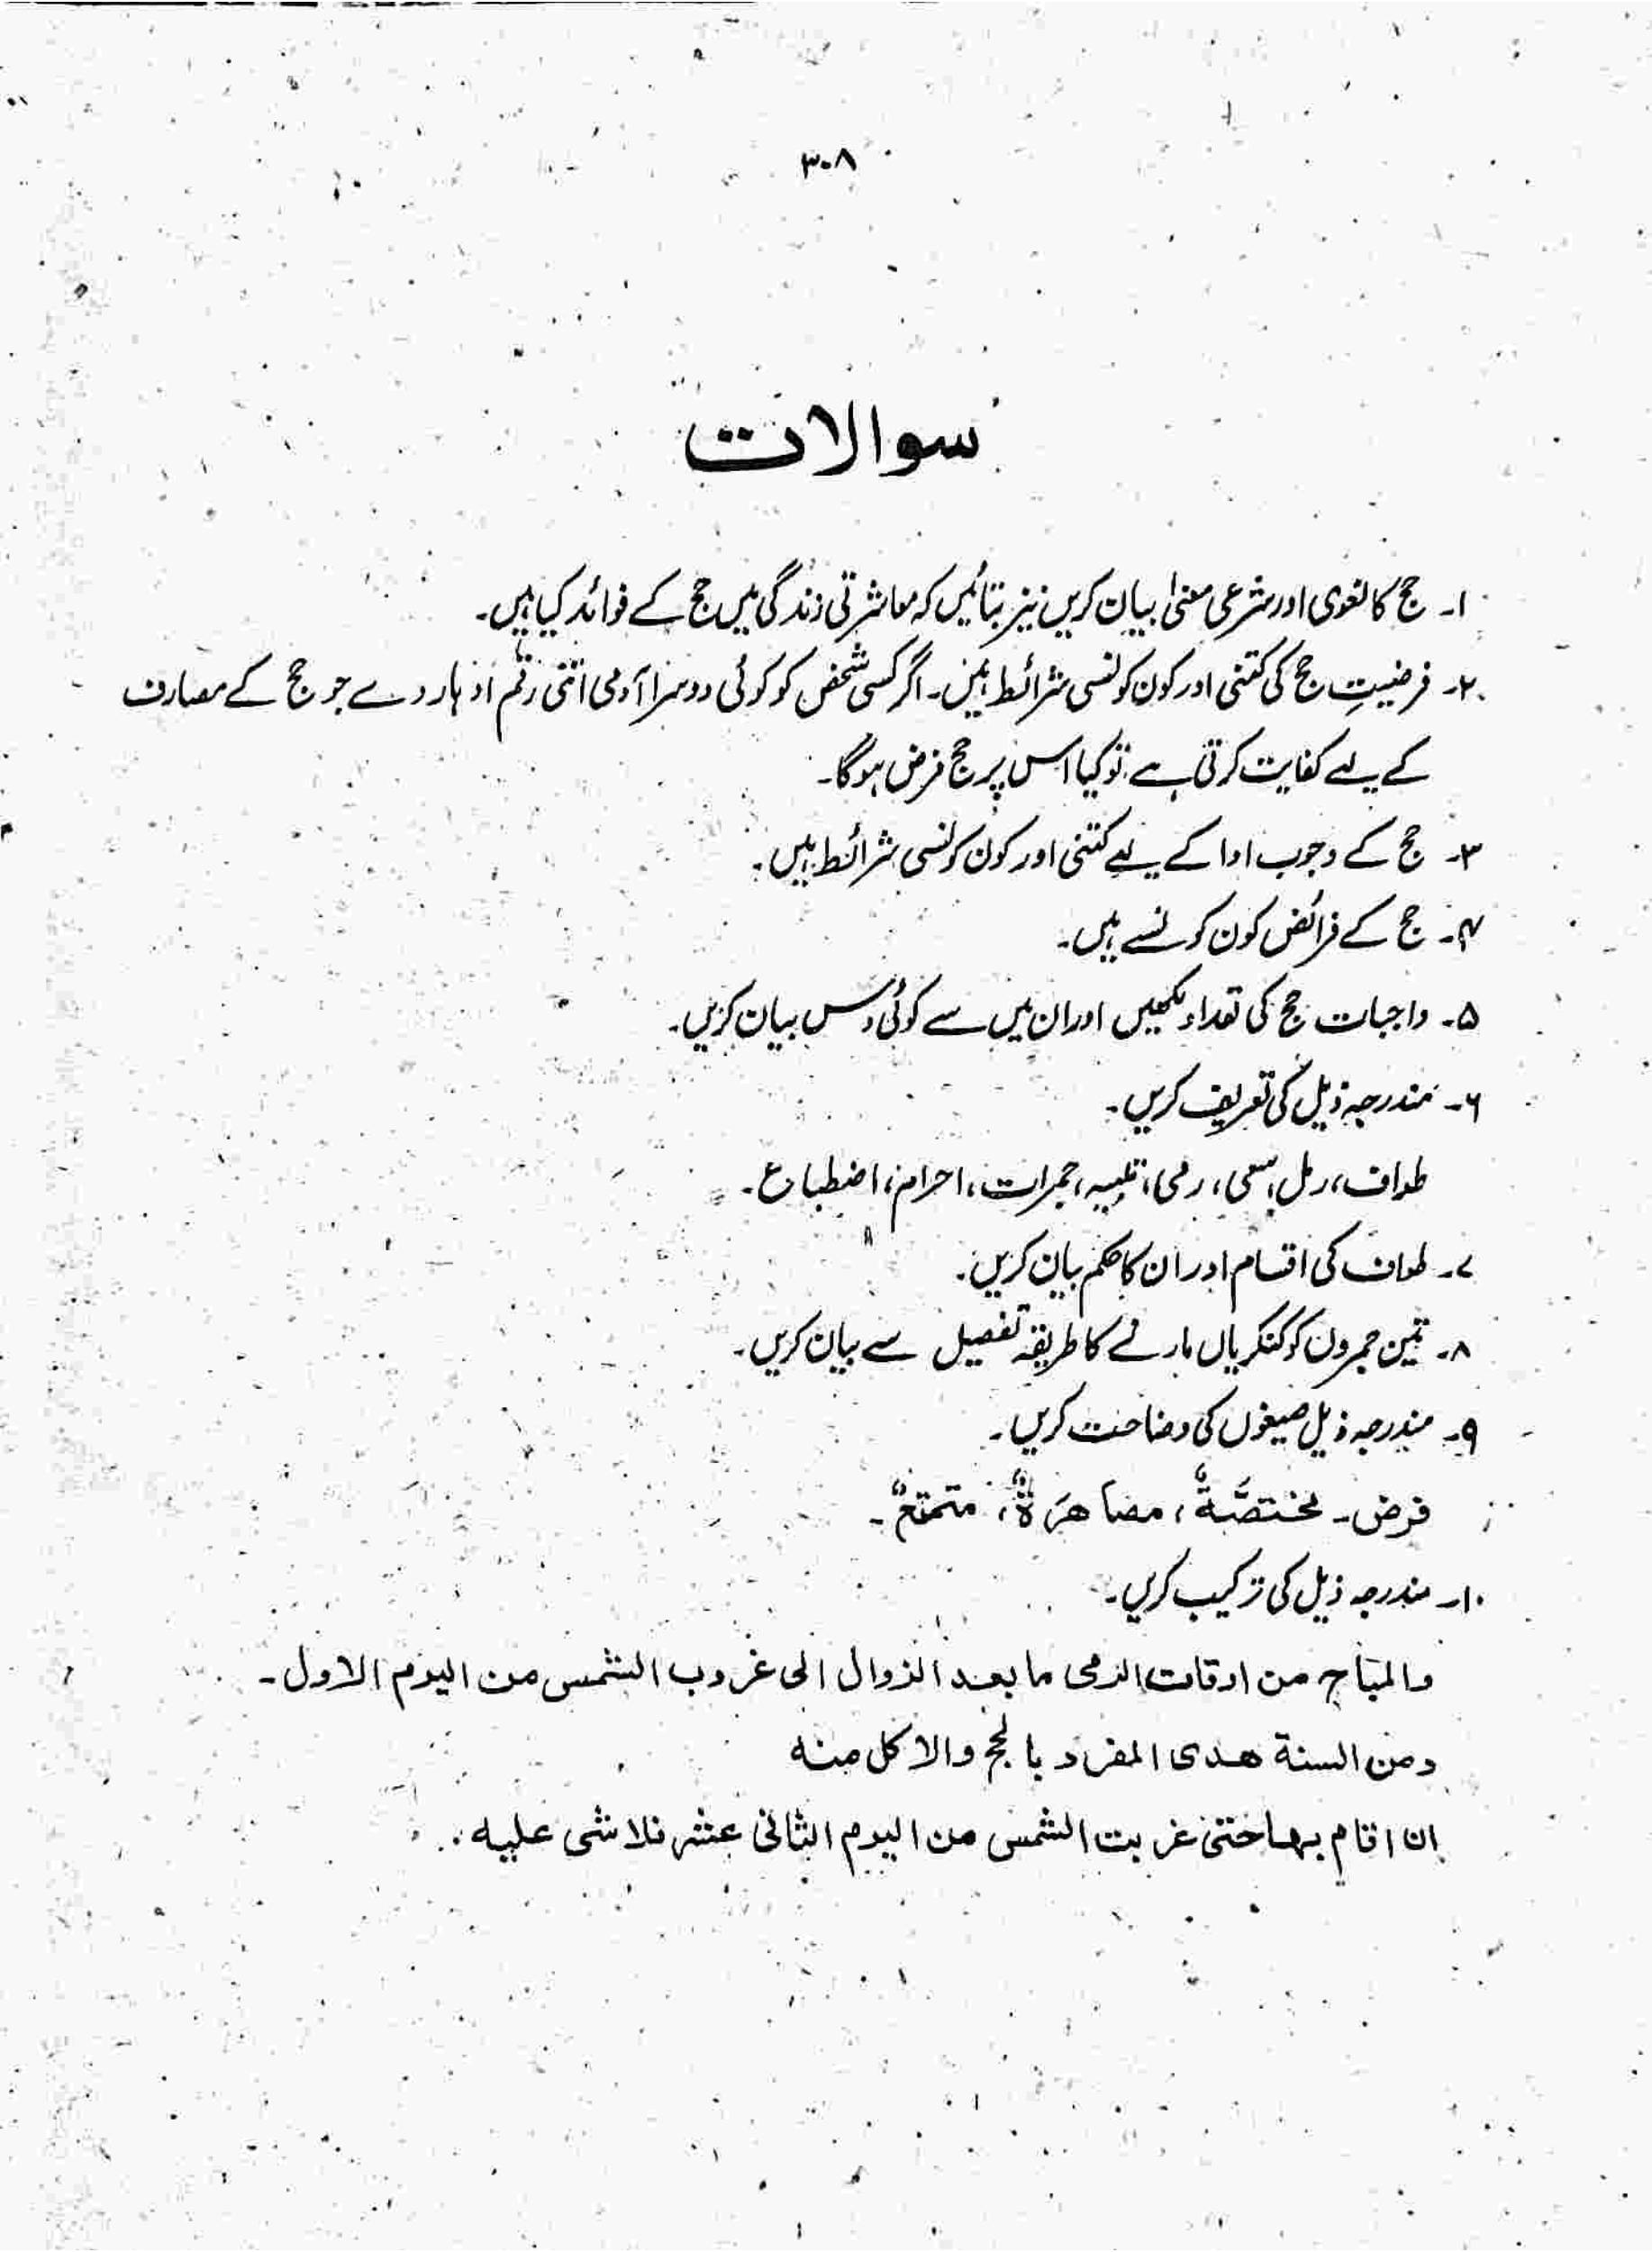 ۳۰۸
سوالات
۱۔ حج کا لغوی اور شرعی معنیٰ بیان کریں نیز بتائیں کہ معاشرتی زندگی میں حج کے فوائد کیا ہیں۔
۲۔ فرضیتِ حج کی کتنی اور کون کونسی شرائط ہیں۔ اگر کسی شخص کو کوئی دوسرا آدمی اتنی رقم ادہار دے جو حج کے مصارف
کے لیے کفایت کرتی ہے تو کیا اس پر حج فرض ہوگا۔
۳۔ حج کے وجوب ادا کے لیے کتنی اور کون کونسی شرائط ہیں۔
۴۔ حج کے فرائض کون کونسے ہیں۔
۵۔ واجبات حج کی تعداد لکھیں اور ان میں سے کوئی دس بیان کریں۔
۶۔ مندرجہ ذیل کی تعریف کریں۔
طواف، رمل، سعی، رمی، تلبیہ، جمرات، احرام، اضطباع۔
۷۔ طواف کی اقسام اور ان کا حکم بیان کریں۔
۸۔ تین جمروں کو کنکریاں مارنے کا طریقہ تفصیل سے بیان کریں۔
۹۔ مندرجہ ذیل صیغوں کی وضاحت کریں۔
فرض۔ مختصَّةٌ، مصاھَرَةٌ، متمتعٌ۔
۱۰۔ مندرجہ ذیل کی ترکیب کریں۔
والمباح من اوقات الرمی ما بعد الزوال الی غروب الشمس من الیوم الاول۔
ومن السنة ھدی المفرد بالحج والاکل منه
ان اقام بھا حتی غربت الشمس من الیوم الثانی عشر فلا شی علیه۔